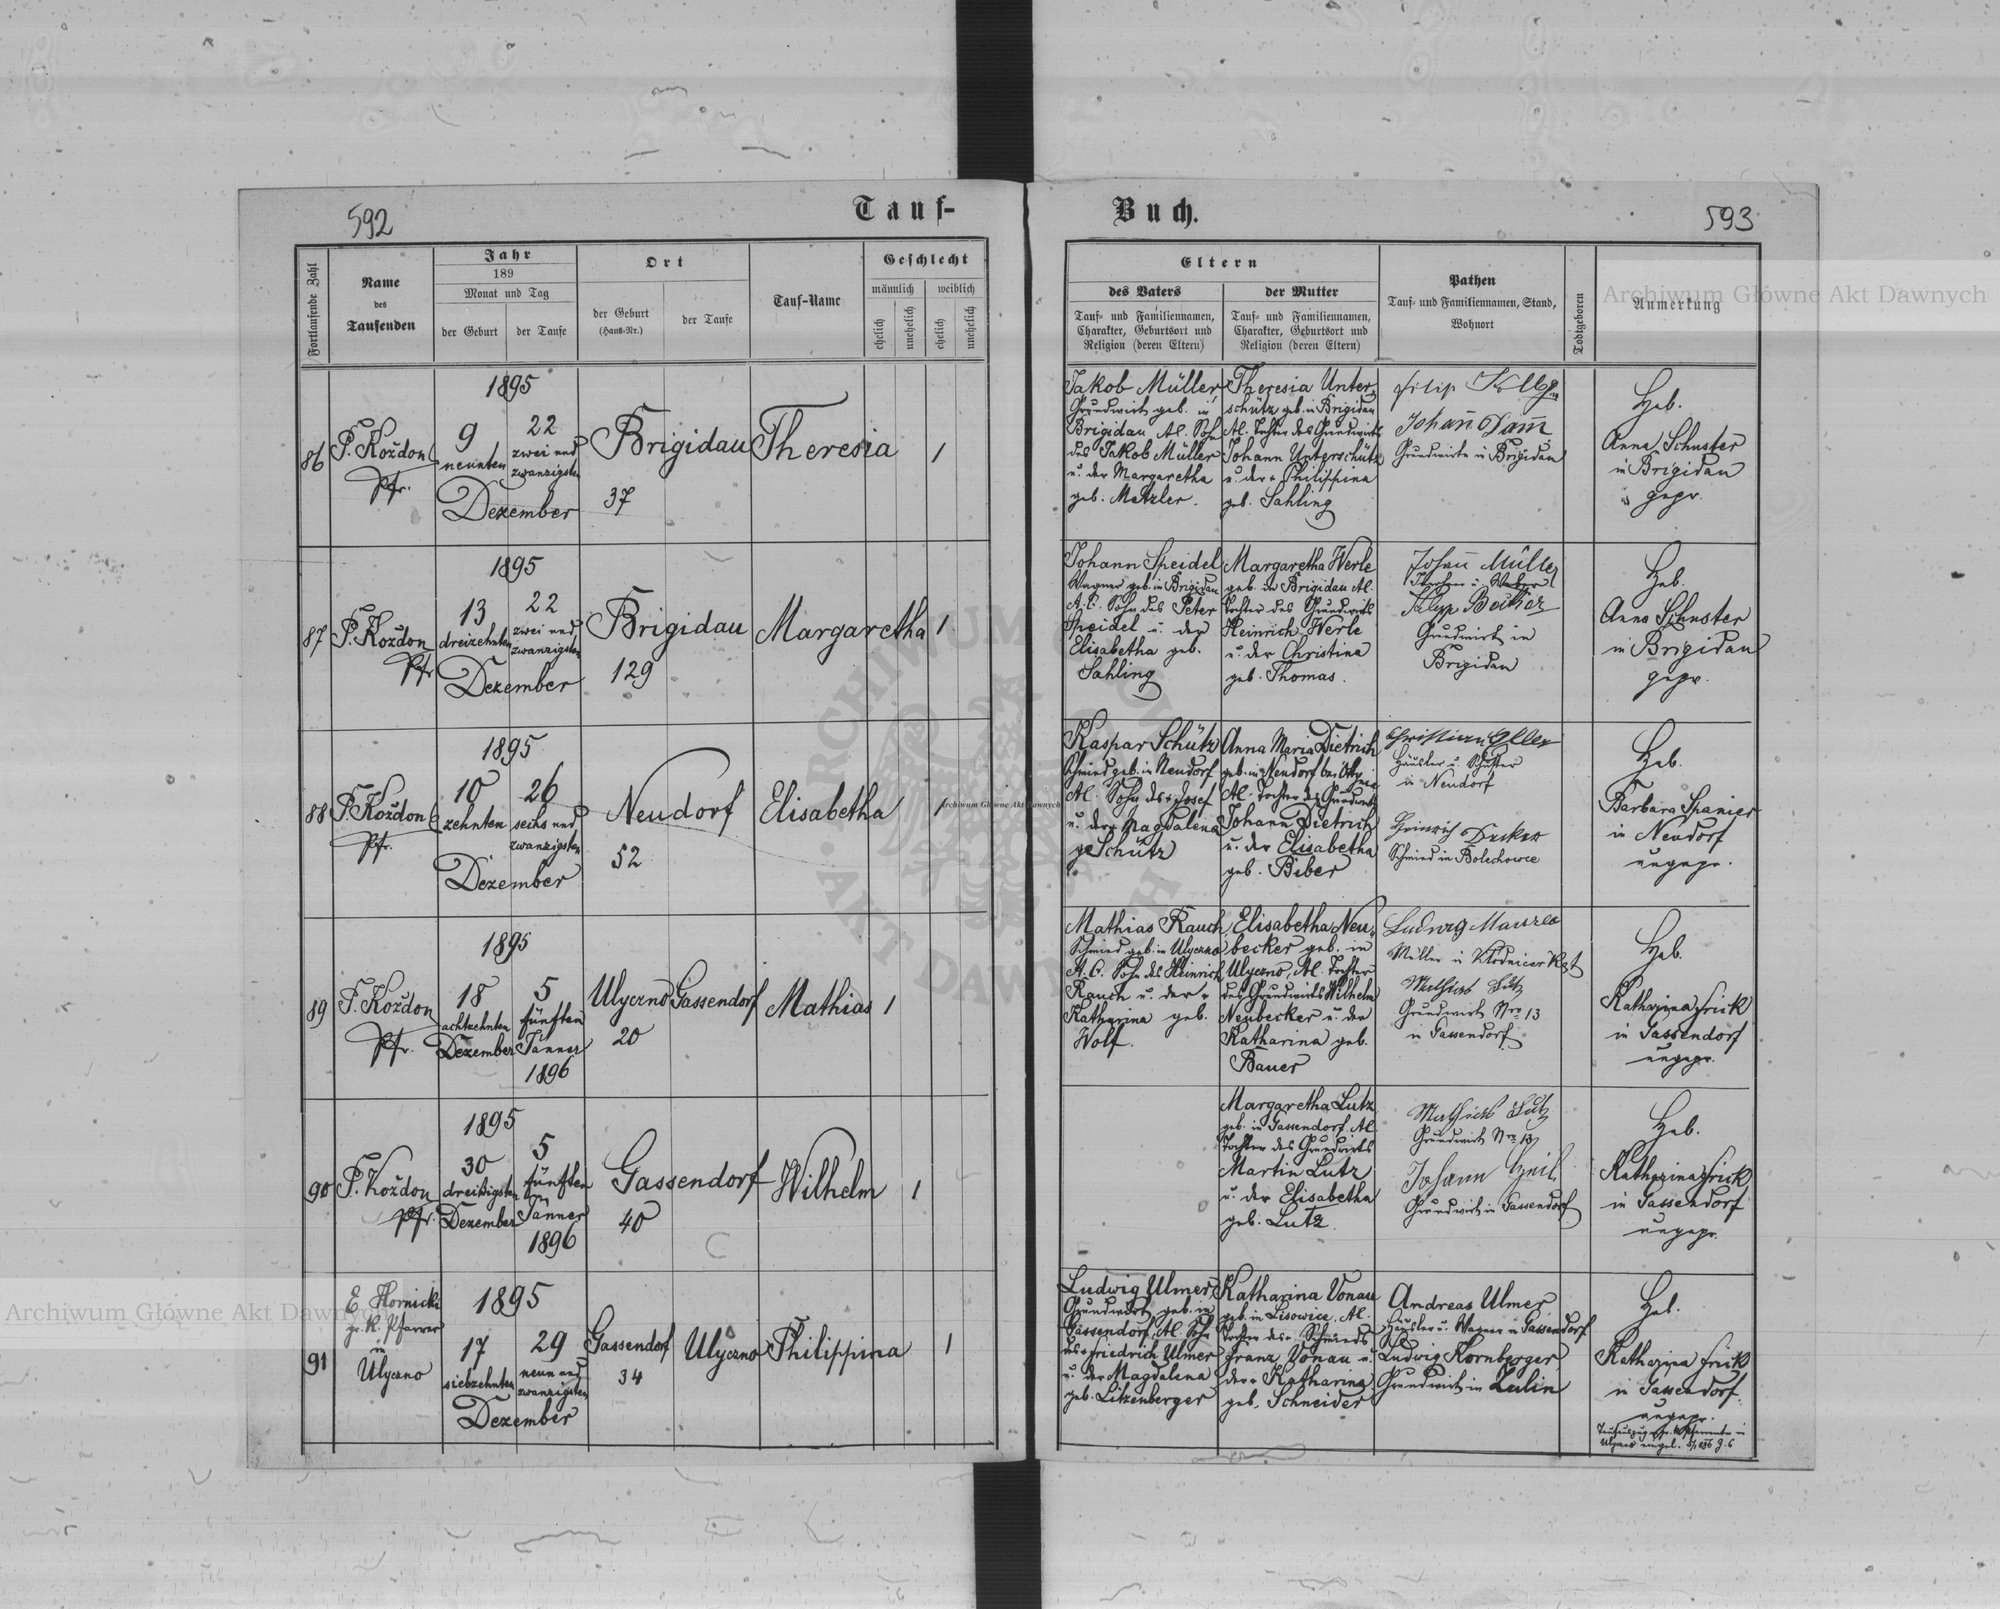 592
Tauf-
Fortlaufende Zahl
Name
des
Taufenden
Jahr
189
Monat und Tag
der Geburt
der Taufe
Ort
der Geburt
(Haus-Nr.)
der Taufe
Tauf-Name
Geschlecht
männlich
weiblich
ehelich
unehelich
ehelich
unehelich
86
P. Kożdon
Pfr.
1895
9
neunten
22
zwei und
zwanzigsten
Dezember
Brigidau
37
Theresia
1
87
P. Kożdon
Pfr
1895
13
dreizehnten
22
zwei und
zwanzigsten
Dezember
Brigidau
129
Margaretha
1
88
P. Kożdon
Pfr.
1895
10
zehnten
26
sechs und
zwanzigsten
Dezember
Neudorf
52
Elisabetha
1
89
P. Kożdon
Pfr.
1895
18
achtzehnten
Dezember
5
fünften
Jänner
1896
Ulyczno
20
Gassendorf
Mathias
1
90
P. Kożdon
Pfr.
1895
30
dreißigsten
Dezember
5
fünften
Jänner
1896
Gassendorf
40
Wilhelm
1
91
E. Hornicki
gr. k. Pfarrer
in
Ulyczno
1895
17
siebzehnten
29
neun und
zwanzigsten
Dezember
Gassendorf
34
Ulyczno
Philippina
1
Buch.
593
Eltern
des Vaters
Tauf- und Familiennamen,
Charakter, Geburtsort und
Religion (deren Eltern)
der Mutter
Tauf- und Familiennamen,
Charakter, Geburtsort und
Religion (deren Eltern)
Pathen
Tauf- und Familiennamen, Stand,
Wohnort
Todtgeboren
Anmerkung
Jakob Müller
Grundwirt geb. in
Brigidau A.C. Sohn
des Jakob Müller
u. der Margaretha
geb. Metzler.
Theresia Unter-
schütz geb. in Brigidau
A.C. Tochter des Grundwirts
Johann Unterschütz
u. der Philippina
geb. Sahling
Filip
Johann
Grundwirte in Brigidau
Heb.
Anna Schuster
in Brigidau
gepr.
Johann Speidel
Wagner geb. in Brigidau
A.C. Sohn des Peter
Speidel u. der
Elisabetha geb.
Sahling
Margaretha Werle
geb. in Brigidau A.C.
Tochter des Grundwirts
Heinrich Werle
u. der Christina
geb. Thomas.
Johann Müller
Grundwirt in
Brigidau
Heb.
Anna Schuster
in Brigidau
gepr.
Kaspar Schütz
Schmied geb. in Neudorf
A.C. Sohn des Josef
u. der Magdalena
Schütz
Anna Maria Dietrich
geb. in Neudorf bei
A.C. Tochter des Grundwirts
Johann Dietrich
u. der Elisabetha
geb. Biber
Christian
Häusler u. Schuster
in Neudorf
Heinrich Decker
Schmied in Bolechowce
Heb.
Barbara Spanier
in Neudorf
ungepr.
Mathias Rauch
Schmied geb. in Ulyczno
A.C. Sohn des Heinrich
Rauch u. der
Katharina geb.
Wolf.
Elisabetha Neu-
becker geb. in
Ulyczno, A.C. Tochter
des Grundwirts Wilhelm
Neubecker u. der
Katharina geb.
Bauer
Ludwig Maurer
Müller in
Mathias Lutz
Grundwirt Nro 13
in Gassendorf
Heb.
Katharina Frick
in Gassendorf
ungepr.
Margaretha Lutz
geb. in Gassendorf A.C.
Tochter des Grundwirts
Martin Lutz
u. der Elisabetha
geb. Lutz.
Mathias Lutz
Grundwirt Nro 13
Johann
Grundwirt in Gassendorf
Heb.
Katharina Frick
in Gassendorf
ungepr.
Ludwig Ulmer,
Grundwirt geb. in
Gassendorf, A.C. Sohn
des Friedrich Ulmer
u. der Magdalena
geb. Litzenberger
Katharina Vonau
geb. in Lisowice, A.C.
Tochter des Schmieds
Franz Vonau u.
der Katharina
geb. Schneider
Andreas Ulmer,
Häusler u. Wagner in Gassendorf
Ludwig Kornberger
Grundwirt in Zulin
Heb.
Katharina Frick
in Gassendorf.
ungepr.
Archiwum Główne Akt Dawnych
Archiwum Główne Akt Dawnych
Archiwum Główne Akt Dawnych